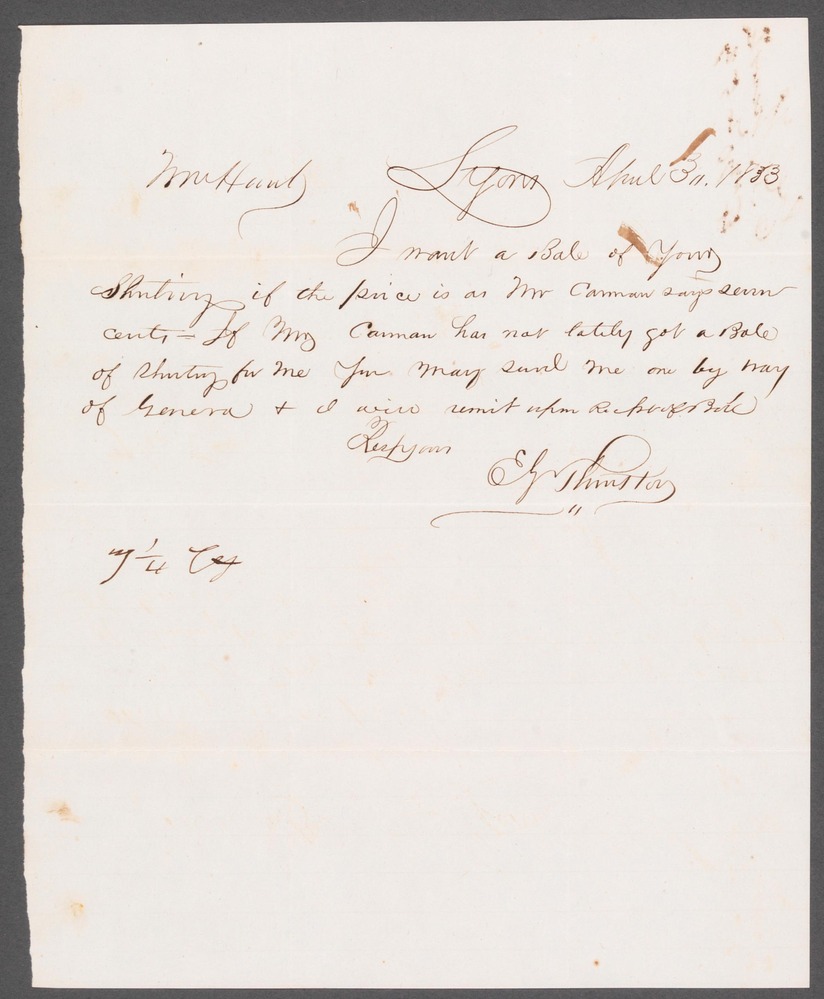 Lyons April 30. 1853
Wm Hunt
I want a Bale of Your
Shirting if the price is as Mr Carman says seven
cents - If Mr Carman has not lately got a Bale
of Shirting for Me You May send Me one by way
of Geneva & I will remit upon Recpt of Bale
Resp yours
E G Thurston
7 1/4 Cts